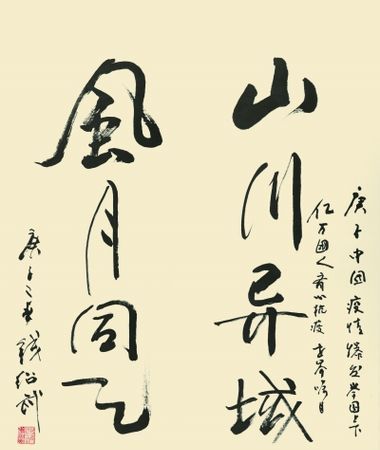 庚子中国疫情爆发举国上下
亿万國人齐心抗疫
山川异域
風月同天
庚子之春 钱绍武